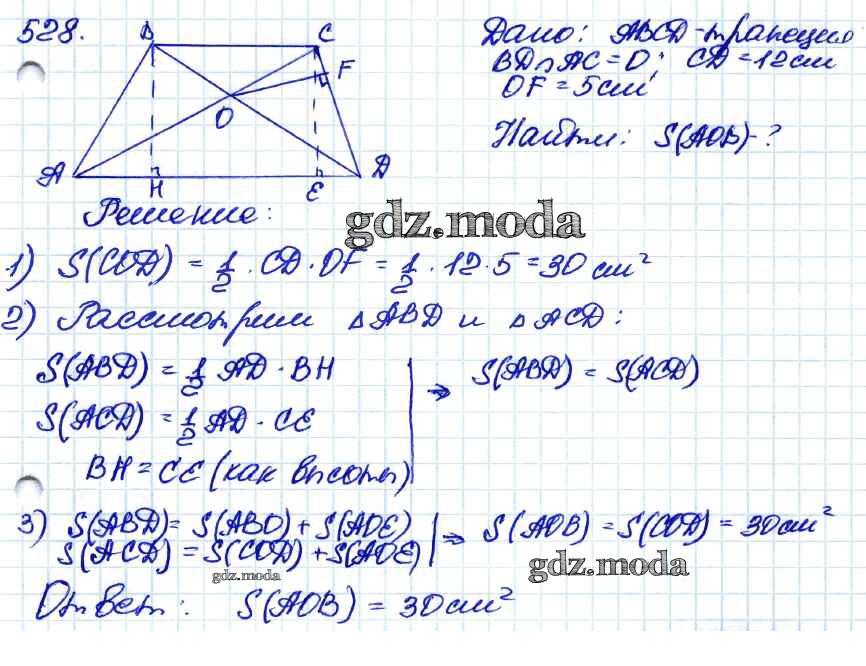 528.
B C F O A H E D
Дано: ABCD-трапеция
BD∩AC=O; CD=12см
OF=5см
Найти: S(AOB)-?
Решение:
gdz.moda
1) S(COD) = 1/2 · CD · OF = 1/2 · 12 · 5 = 30 см²
2) Рассмотрим △ABD и △ACD:
S(ABD) = 1/2 AD · BH
S(ACD) = 1/2 AD · CE
BH = CE (как высоты)
⇒ S(ABD) = S(ACD)
3) S(ABD) = S(ABO) + S(AOE)
S(ACD) = S(COD) + S(AOE)
⇒ S(AOB) = S(COD) = 30 см²
gdz.moda
gdz.moda
Ответ: S(AOB) = 30 см²